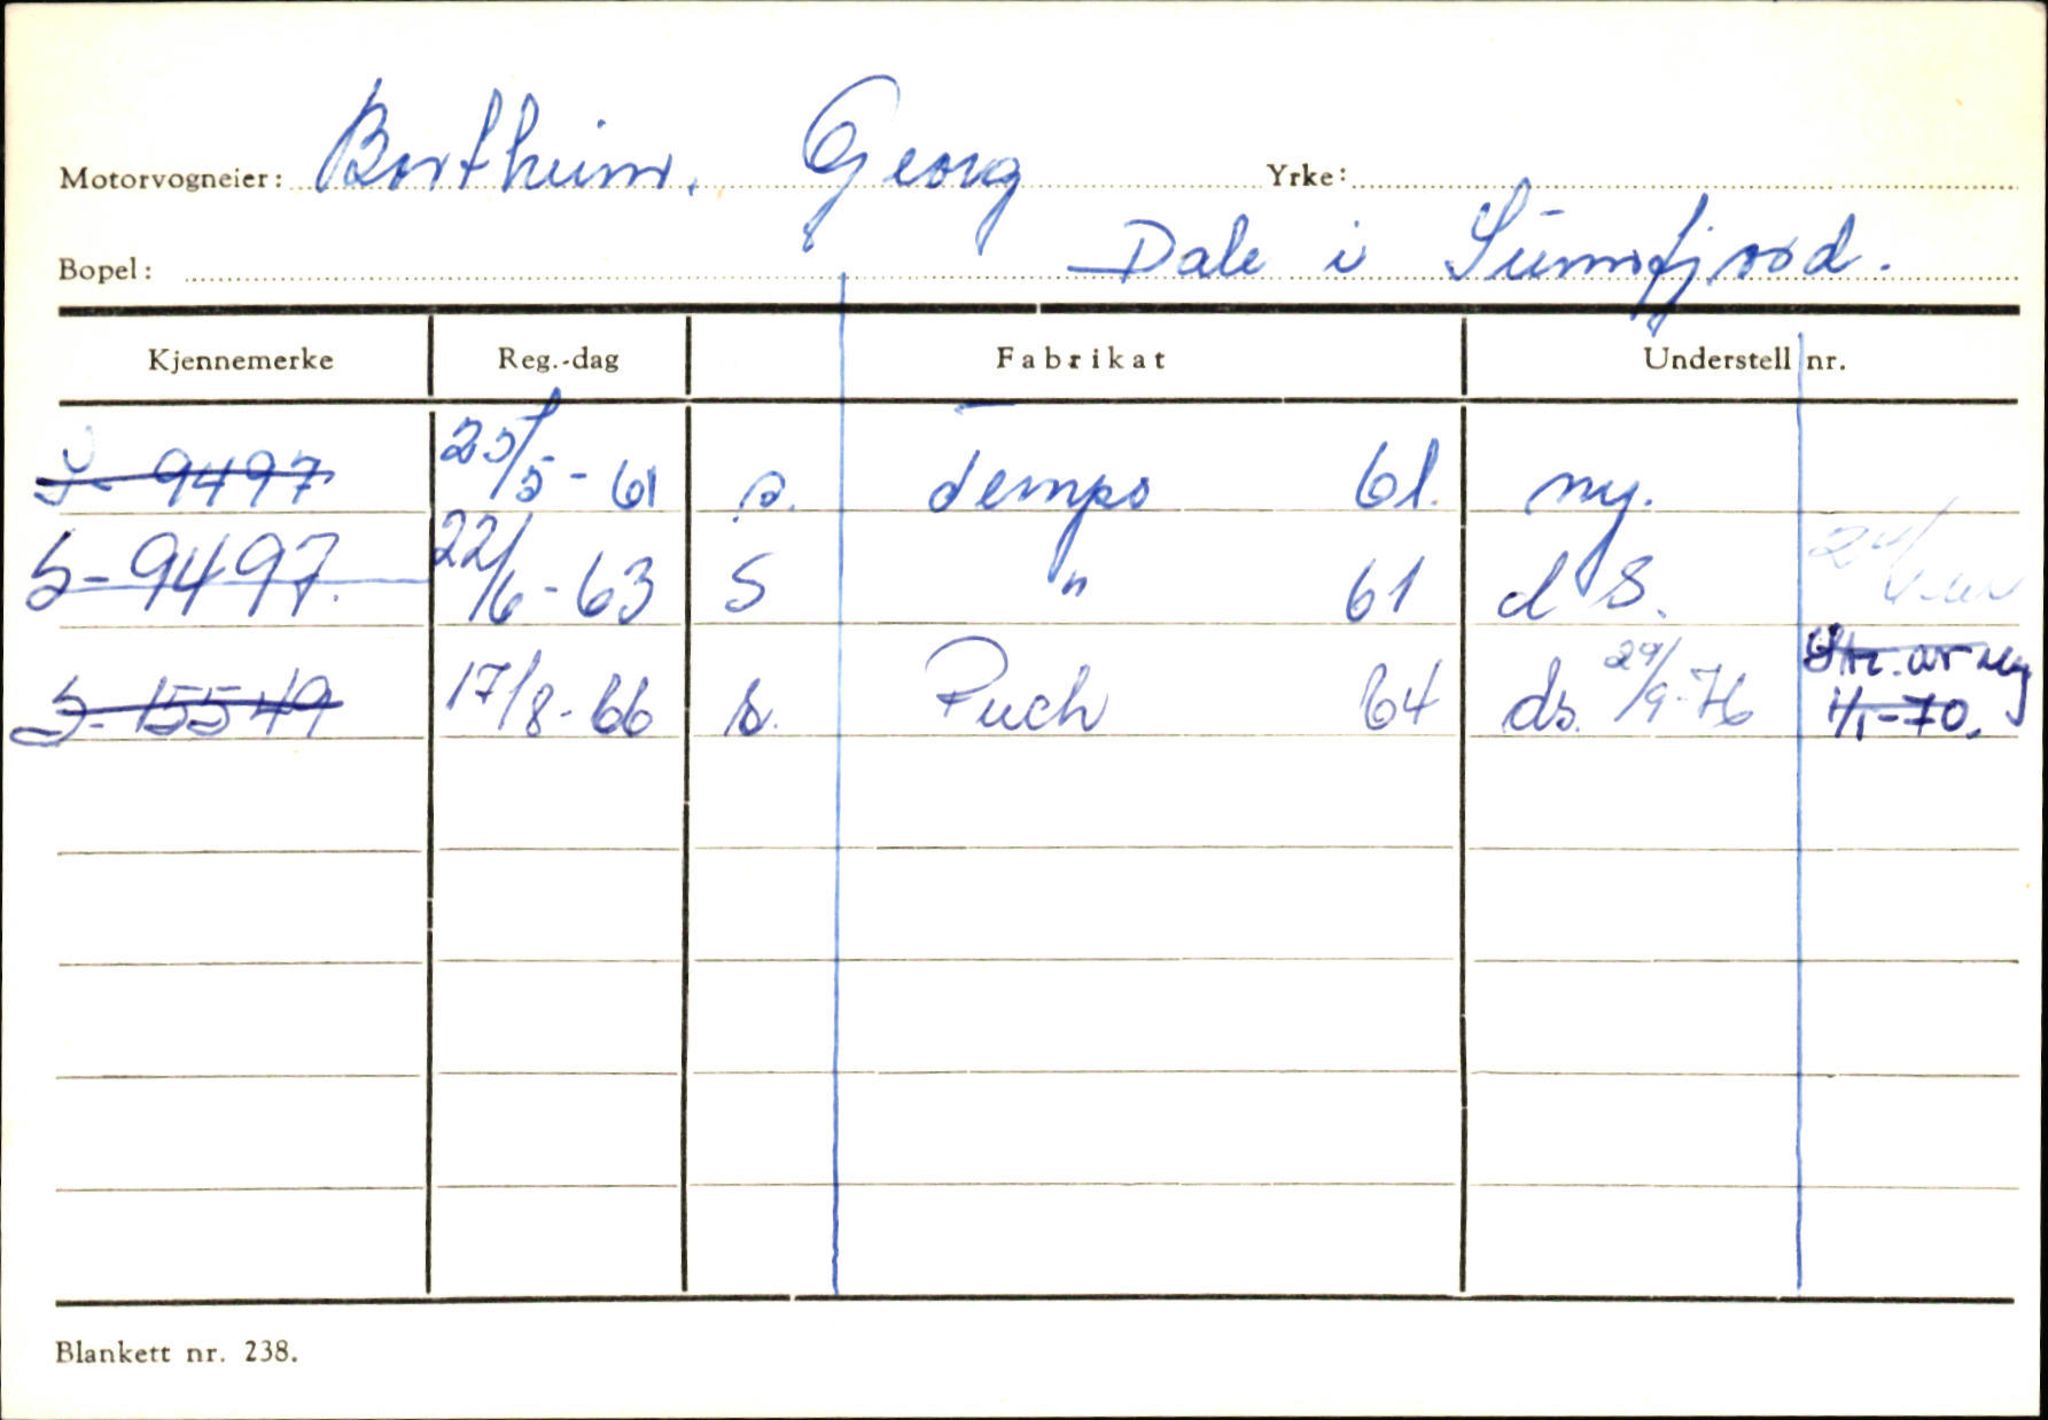 Motorvogneier: Bortheim. Georg Yrke:
Bopel: Dale i Sunnfjord.
Kjennemerke Reg.-dag Fabrikat Understell nr.
S- 9497 23/5-61 s. Tempo 61. ny.
S-9497. 22/6-63 S " 61 d S.
S-15549 17/8-66 s. Puch 64 ds. 29/9-76 Str. av reg 1/1-70.
Blankett nr. 238.